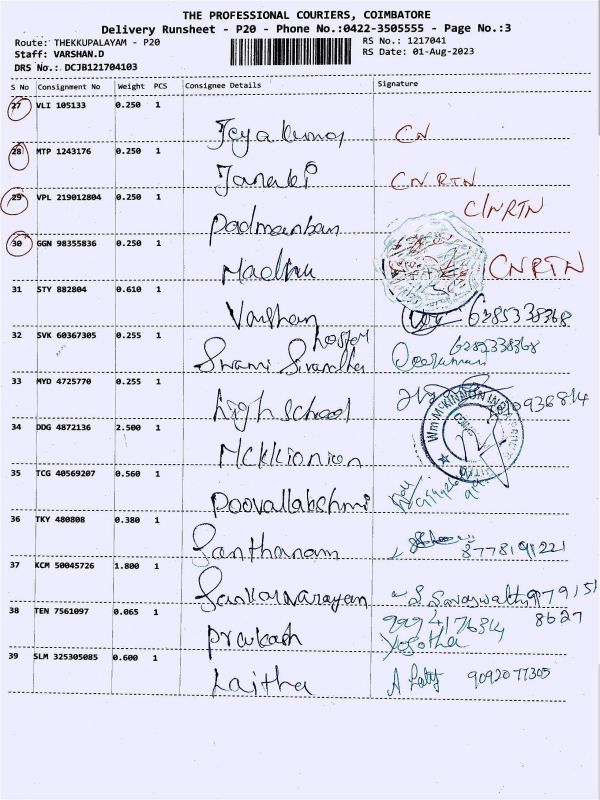 THE PROFESSIONAL COURIERS, COIMBATORE
Delivery Runsheet - P20 - Phone No.:0422-3505555 - Page No.:3
Route: THEKKUPALAYAM - P20
RS No.: 1217041
Staff: VARSHAN.D
RS Date: 01-Aug-2023
DRS No.: DCJB121704103
S No Consignment No Weight PCS Consignee Details Signature
27 VLI 105133 0.250 1
Jeyakumar CN
28 MTP 1243176 0.250 1
Janaki CN RTN
29 VPL 219012804 0.250 1
Padmanban C/NRTN
30 GGN 98355836 0.250 1
Madhu CNRTN
31 STY 882804 0.610 1
Varshan 6385338368
32 SVK 60367305 0.255 1
hostel
Swami Sivantha 6382338368
33 MYD 4725770 0.255 1
high school
34 DDG 4872136 2.500 1
Mckkionion
Wm McKINNON
35 TCG 40569207 0.560 1
Poovallakshmi
36 TKY 480808 0.380 1
Santhanam 8778191221
37 KCM 50045726 1.800 1
Sankarnarayan S. Saraswathy 979151
8627
38 TEN 7561097 0.065 1
Prakash 9994176314
Yasotha
39 SLM 325305085 0.600 1
Lajtha 9092077305